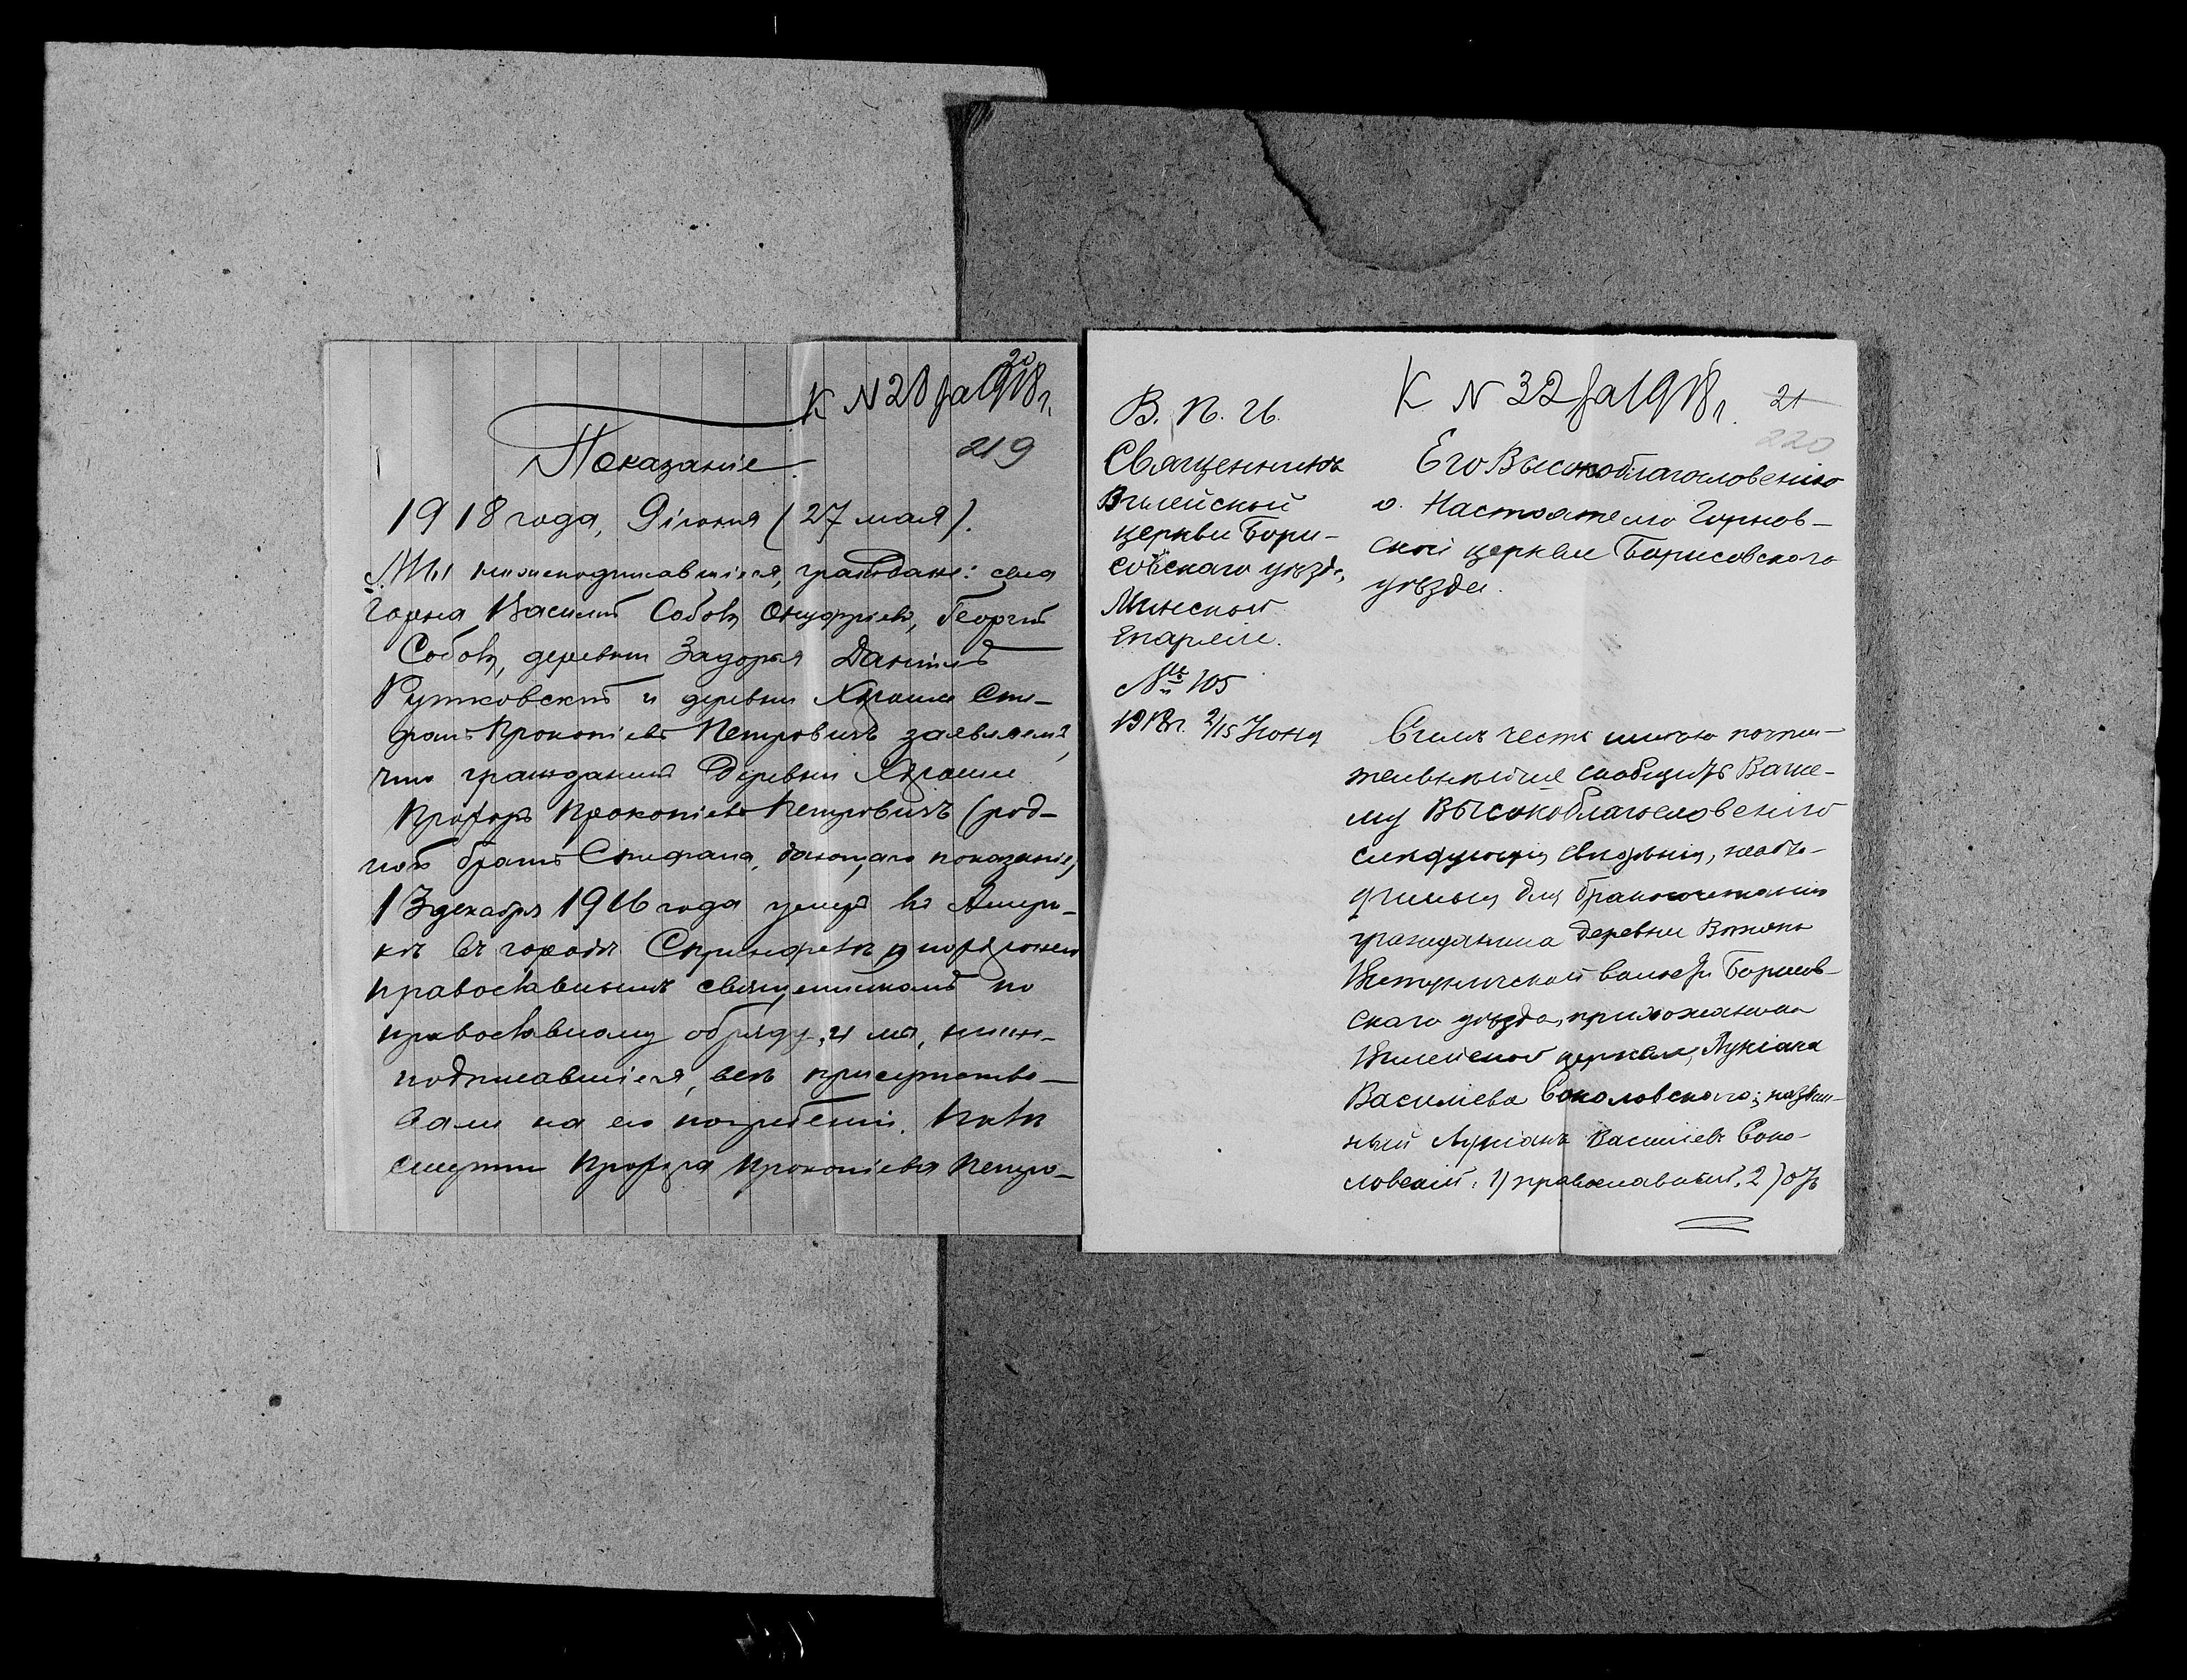 К N 28 за 1918 г.
20
219
Показаніе
1918 года, 9 іюня (27 мая).
Мы нижеподписавшіеся, граждане: села
Горна Василій Соболь Онуфріевъ, Георгій
Соболь, деревни Задорья Даніилъ
Рутковскій и деревни Сте-
фанъ Прокопіевъ Петровичъ заявляемъ,
что гражданинъ деревни
Прохоръ Прокопіевъ Петровичъ (род-
ной братъ Стефана, дающаго показаніе)
13 декабря 1916 года умеръ въ Амери-
кѣ въ городѣ и похороненъ
православнымъ священникомъ по
православному обряду, и мы, ниже-
подписавшіеся, всѣ присутство-
вали на его погребеніи.
смерти Прохора Прокопіева Петро-
К N 32 за 1918 г.
21
220
В. П. И.
Священникъ
Вилейской
церкви Бори-
совскаго уѣзда,
Минской
Епархіи.
№ 105
1918 г. 2/15 Іюня
Его Высокоблагословенію
о. Настоятелю Горнов-
ской церкви Борисовскаго
уѣзда.
Симъ честь имѣю почти-
тельнѣйше сообщить Ваше-
му Высокоблагословенію
слѣдующія свѣдѣнія, необхо-
димыя для бракосочетанія
гражданина деревни
волости Борисов-
скаго уѣзда, прихожанина
Вилейской церкви, Лукіана
Василіева Соколовскаго; назван-
ный Лукіанъ Василіевъ Соко-
ловскій: 1) православный, 2) отъ